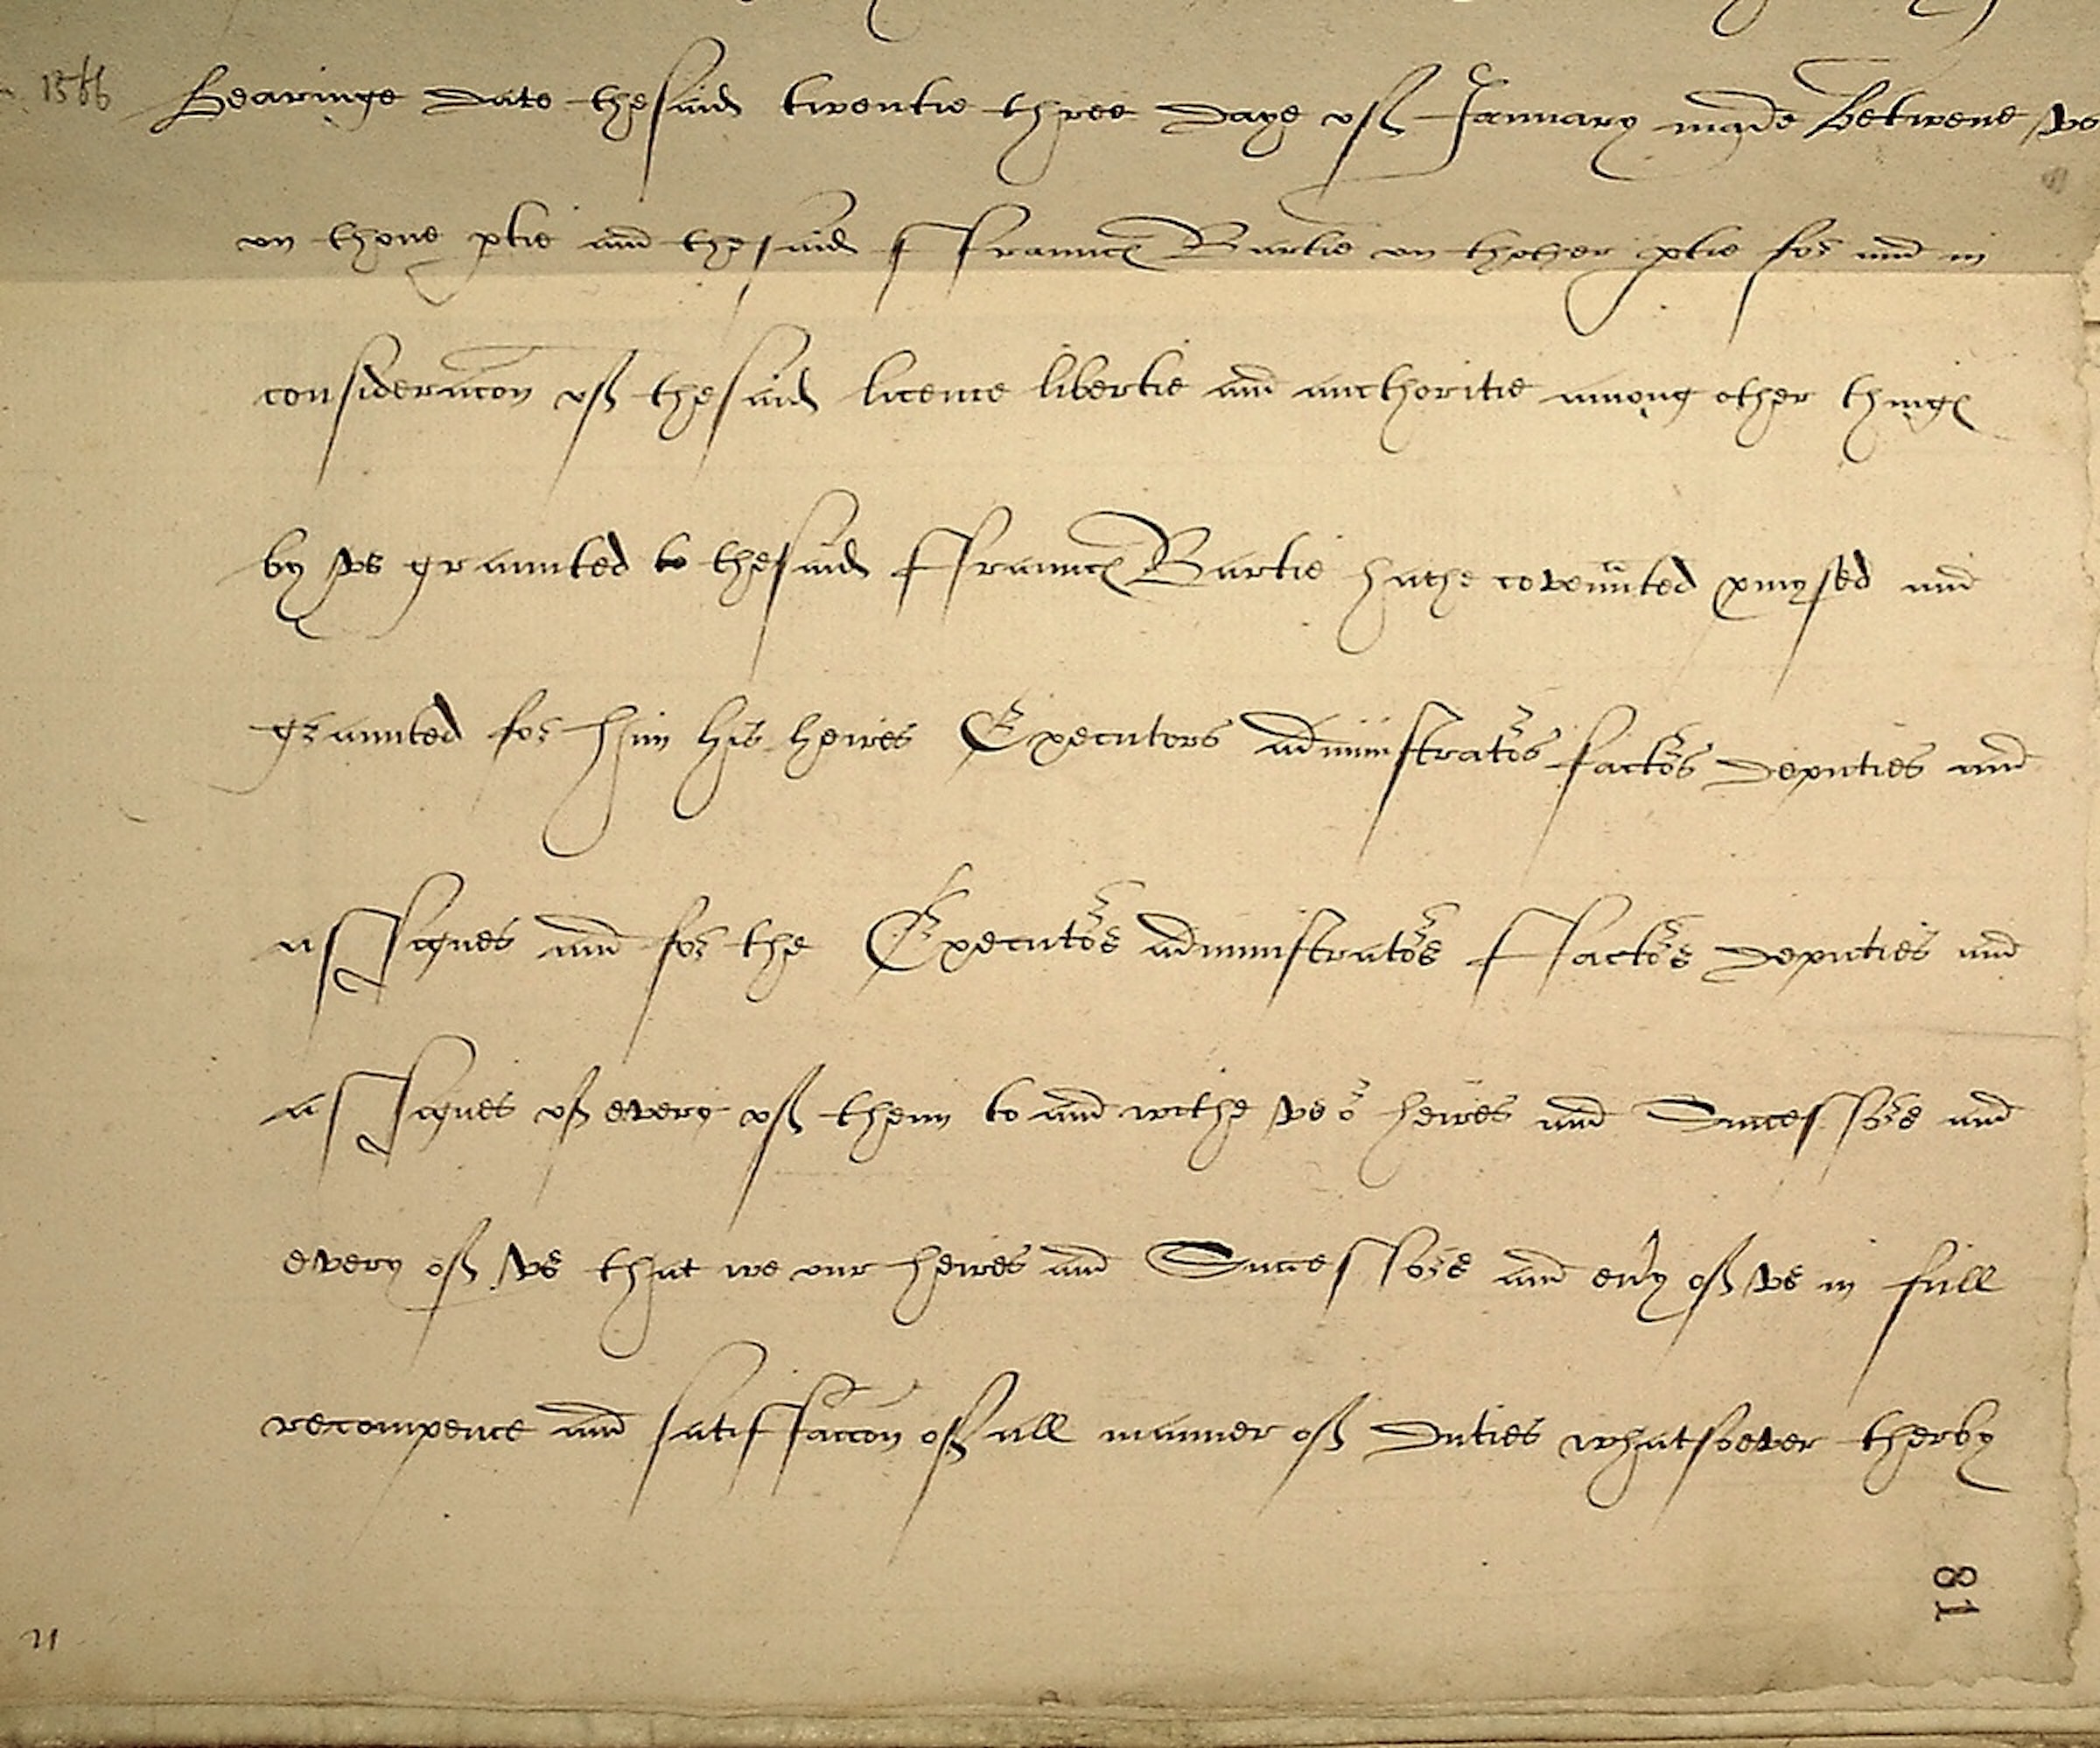 1566
Bearinge date the said twentie three daye off January made betwene vs
on thone ptie and the said ffraunc Bartie on thother ptie for and in
consideracon off the said licence libertie and aucthoritie among other thinge
by vs graunted to the said ffraunc Bartie hathe covennted pmysed and
graunted for him his heires Executors administrators factors deputies and
assignes and for the Executors administrators ffactors deputies and
assignes off every off them to and withe vs or heires and Successors and
every off vs that we our heires and Successors and eny off vs in full
recompence and satisffaccon off all manner off duties whatsoever therby
81